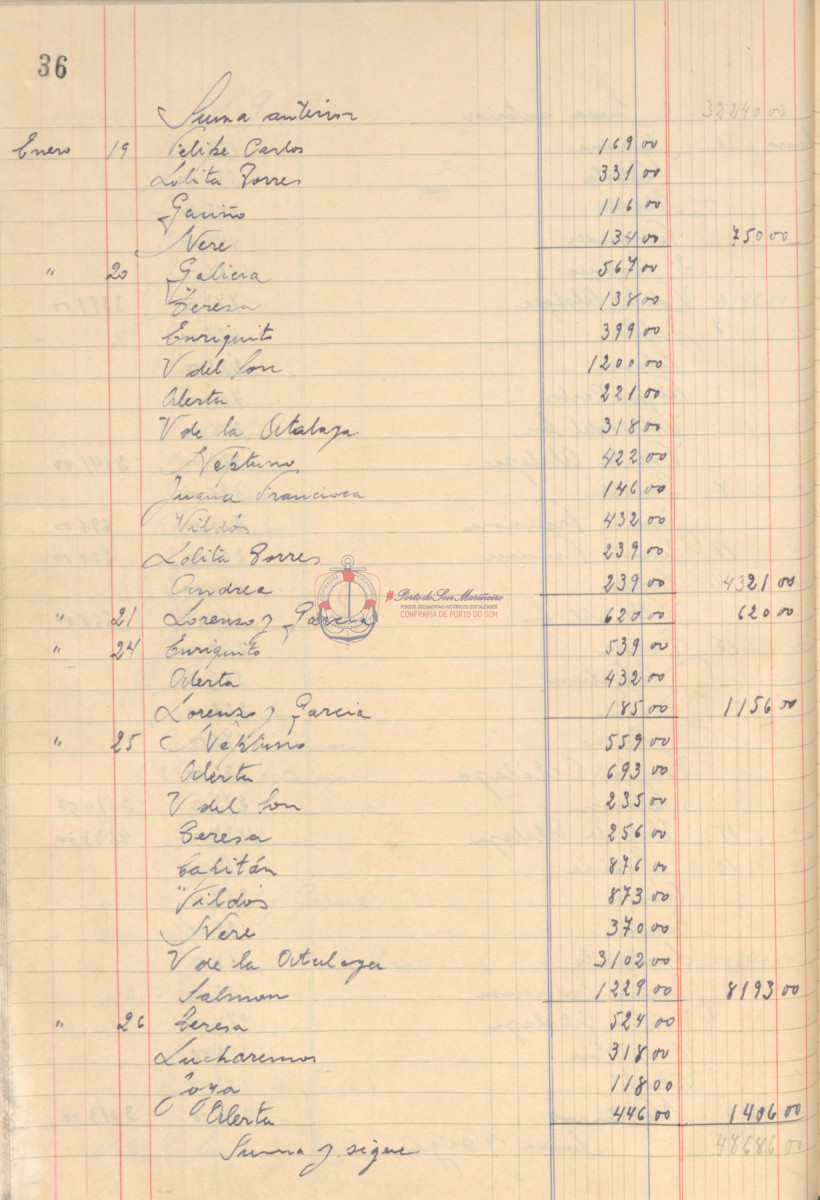 36
Suma anterior 32240 00
Enero 19 Felipe Carlos 169 00
Lolita Torres 331 00
Gariño 116 00
Nere 134 00 750 00
" 20 Galicia 567 00
Teresa 138 00
Enriquito 399 00
V del Son 1200 00
Alerta 221 00
V de la Atalaya 318 00
Neptuno 422 00
Juana Francisca 146 00
Vildós 432 00
Lolita Torres 239 00
Andrea 239 00 4321 00
Porto do Son Mariñeiro
FONDOS DOCUMENTAIS HISTÓRICOS DIXITALIZADOS
CONFRARÍA DE PORTO DO SON
" 21 Lorenzo y García 620 00 620 00
" 24 Enriquito 539 00
Alerta 432 00
Lorenzo y Garcia 185 00 1156 00
" 25 Neptuno 559 00
Alerta 693 00
V del Son 235 00
Teresa 256 00
Capitán 876 00
Vildós 873 00
Nere 370 00
V de la Atalaya 3102 00
Salmon 1229 00 8193 00
" 26 Teresa 524 00
Lucharemos 318 00
Joya 118 00
Alerta 446 00 1406 00
Suma y sigue 48686 00